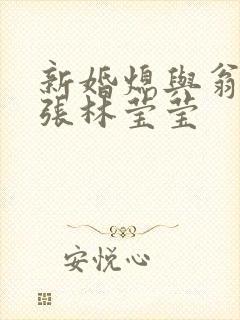 新婚熄與翁
張林莹莹
安悦心